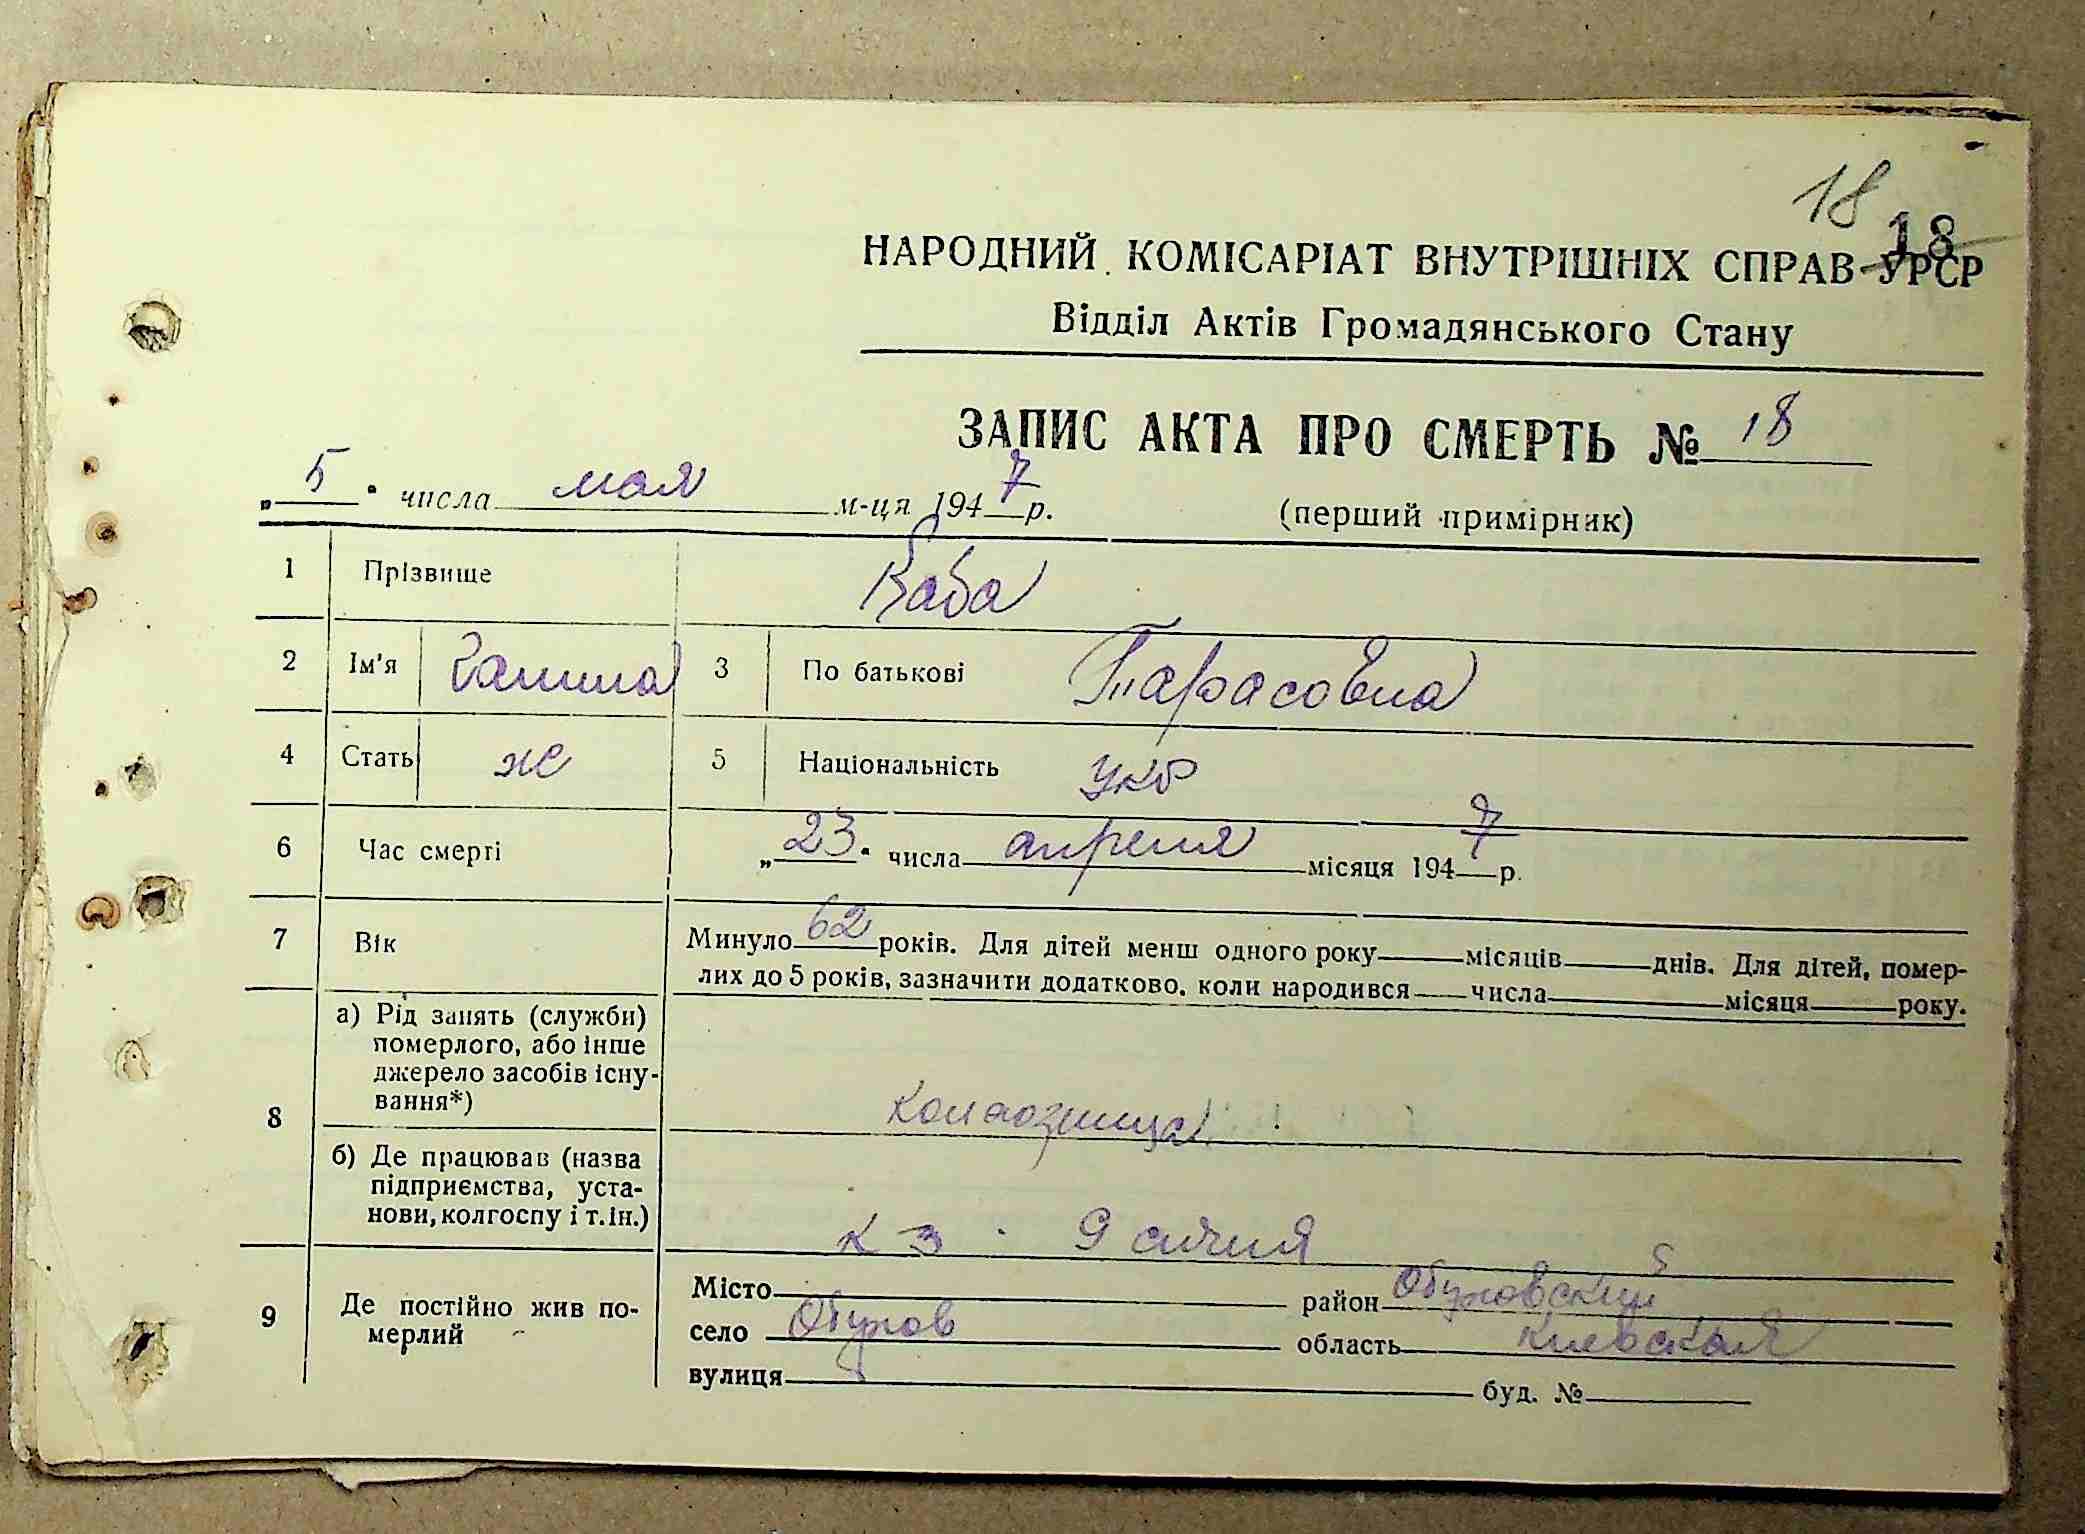 18
18
НАРОДНИЙ КОМІСАРІАТ ВНУТРІШНІХ СПРАВ УРСР
Відділ Актів Громадянського Стану
ЗАПИС АКТА ПРО СМЕРТЬ № 18
„ 5 " числа мая м-ця 1947 р.
(перший примірник)
1 Прізвище Баба
2 Ім'я Галина 3 По батькові Тарасовна
4 Стать ж 5 Національність укр
6 Час смерті „ 23 " числа апреля місяця 1947 р.
7 Вік Минуло 62 років. Для дітей менш одного року місяців днів. Для дітей, помер-
лих до 5 років, зазначити додатково, коли народився числа місяця року.
8 а) Рід занять (служби)
померлого, або інше
джерело засобів існу-
вання*) колхозница
б) Де працював (назва
підприємства, уста-
нови, колгоспу і т. ін.) к з 9 січня
9 Де постійно жив по-
мерлий
Місто район Обуховский
село Обухов область Киевская
вулиця буд. №